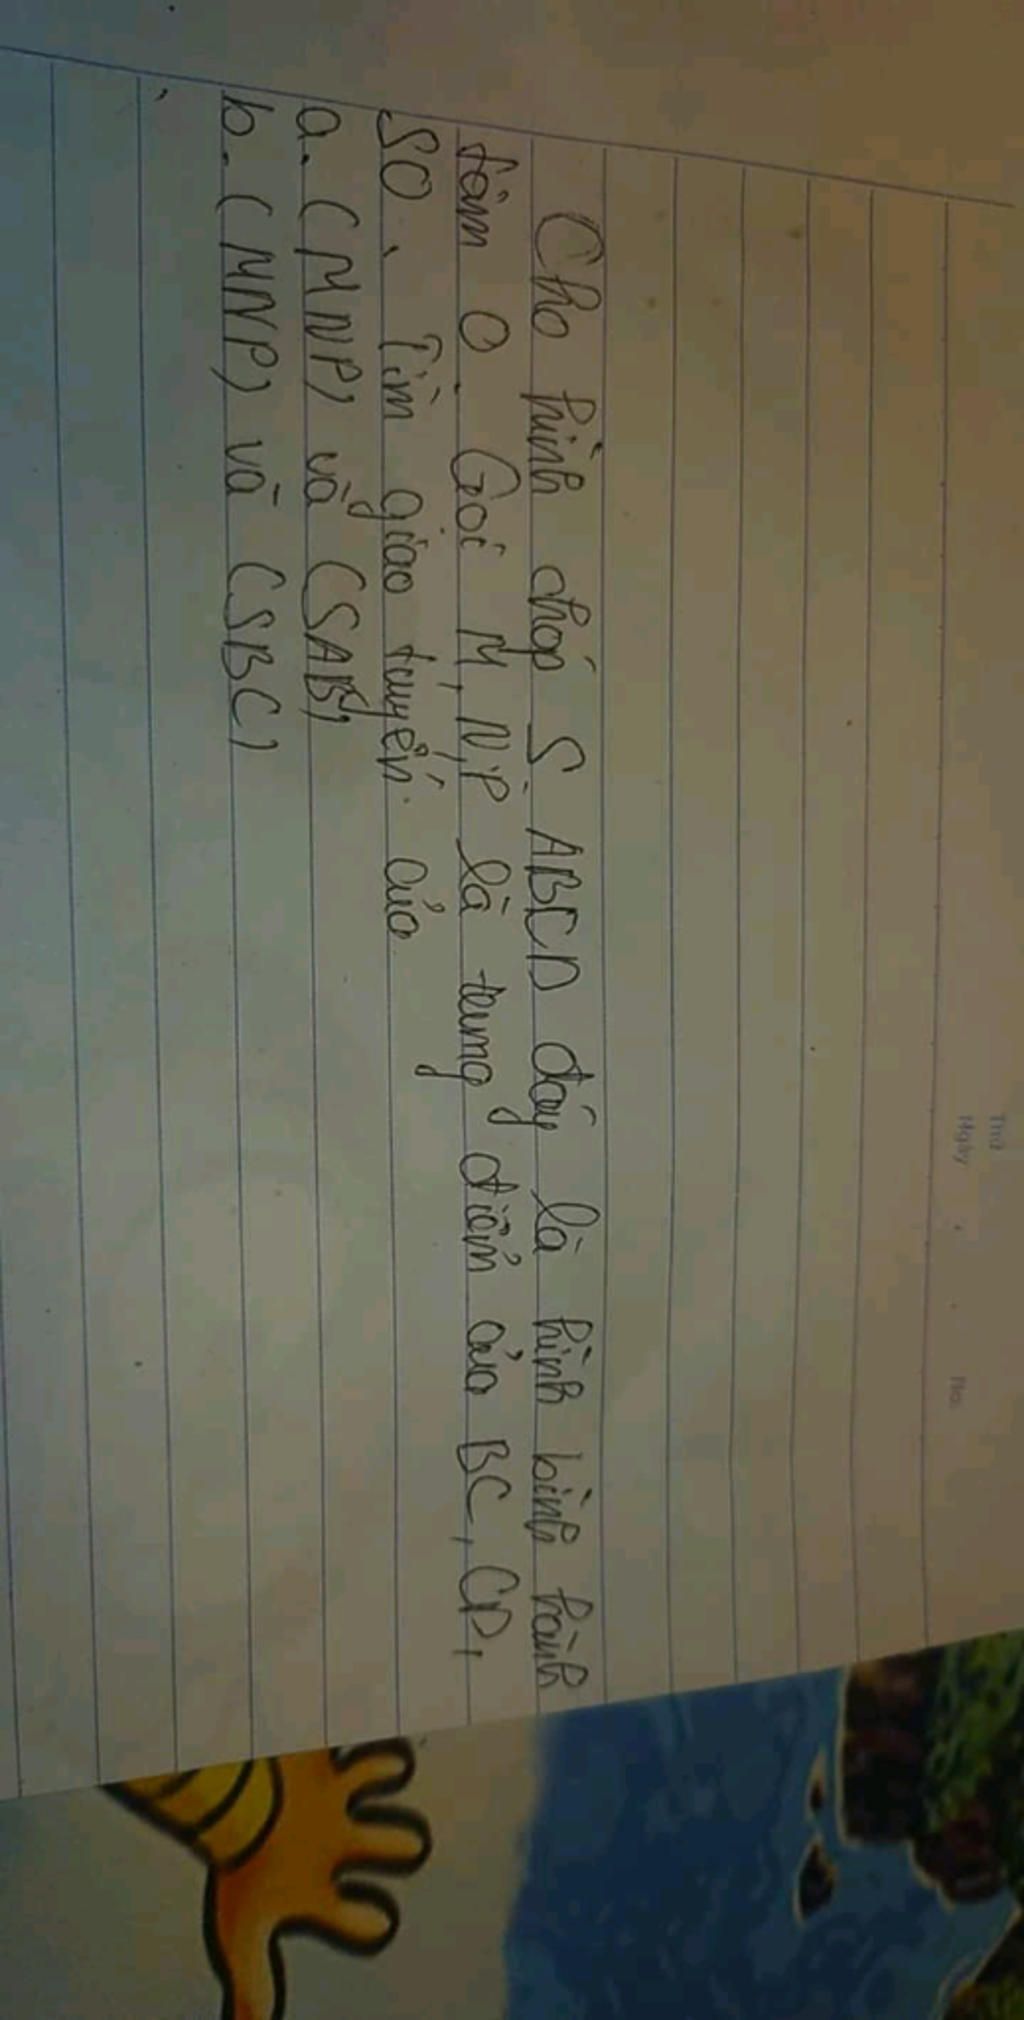 Thứ
Ngày
No.
Cho hình chóp S.ABCD đáy là hình bình hành
tâm O. Gọi M, N, P là trung điểm của BC, CD,
SO. Tìm giao tuyến của
a. (MNP) và (SAB)
b. (MNP) và (SBC)